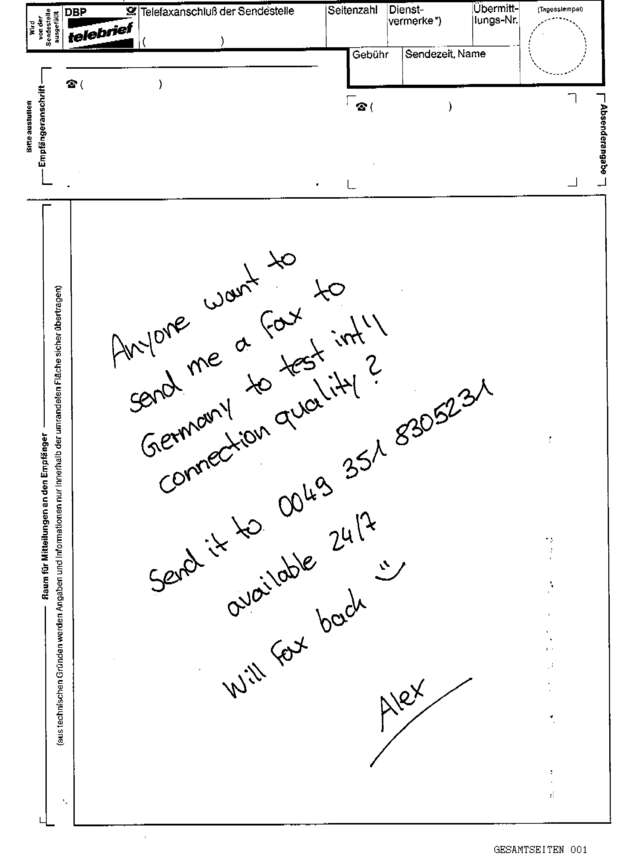 Wird
von der
Sendestelle
ausgefüllt
DBP
telebrief
Telefaxanschluß der Sendestelle
(                    )
Seitenzahl
Dienst-
vermerke*)
Übermitt-
lungs-Nr.
(Tagesstempel)
Gebühr
Sendezeit, Name
Bitte ausfüllen
Empfängeranschrift
☎ (                    )
☎ (                    )
Absenderangabe
Raum für Mitteilungen an den Empfänger
(aus technischen Gründen werden Angaben und Informationen nur innerhalb der umrandeten Fläche sicher übertragen)
Anyone want to
send me a fax to
Germany to test int'l
connection quality?
Send it to 0049 351 8305231
available 24/7
Will fax back ":)
Alex
GESAMTSEITEN 001